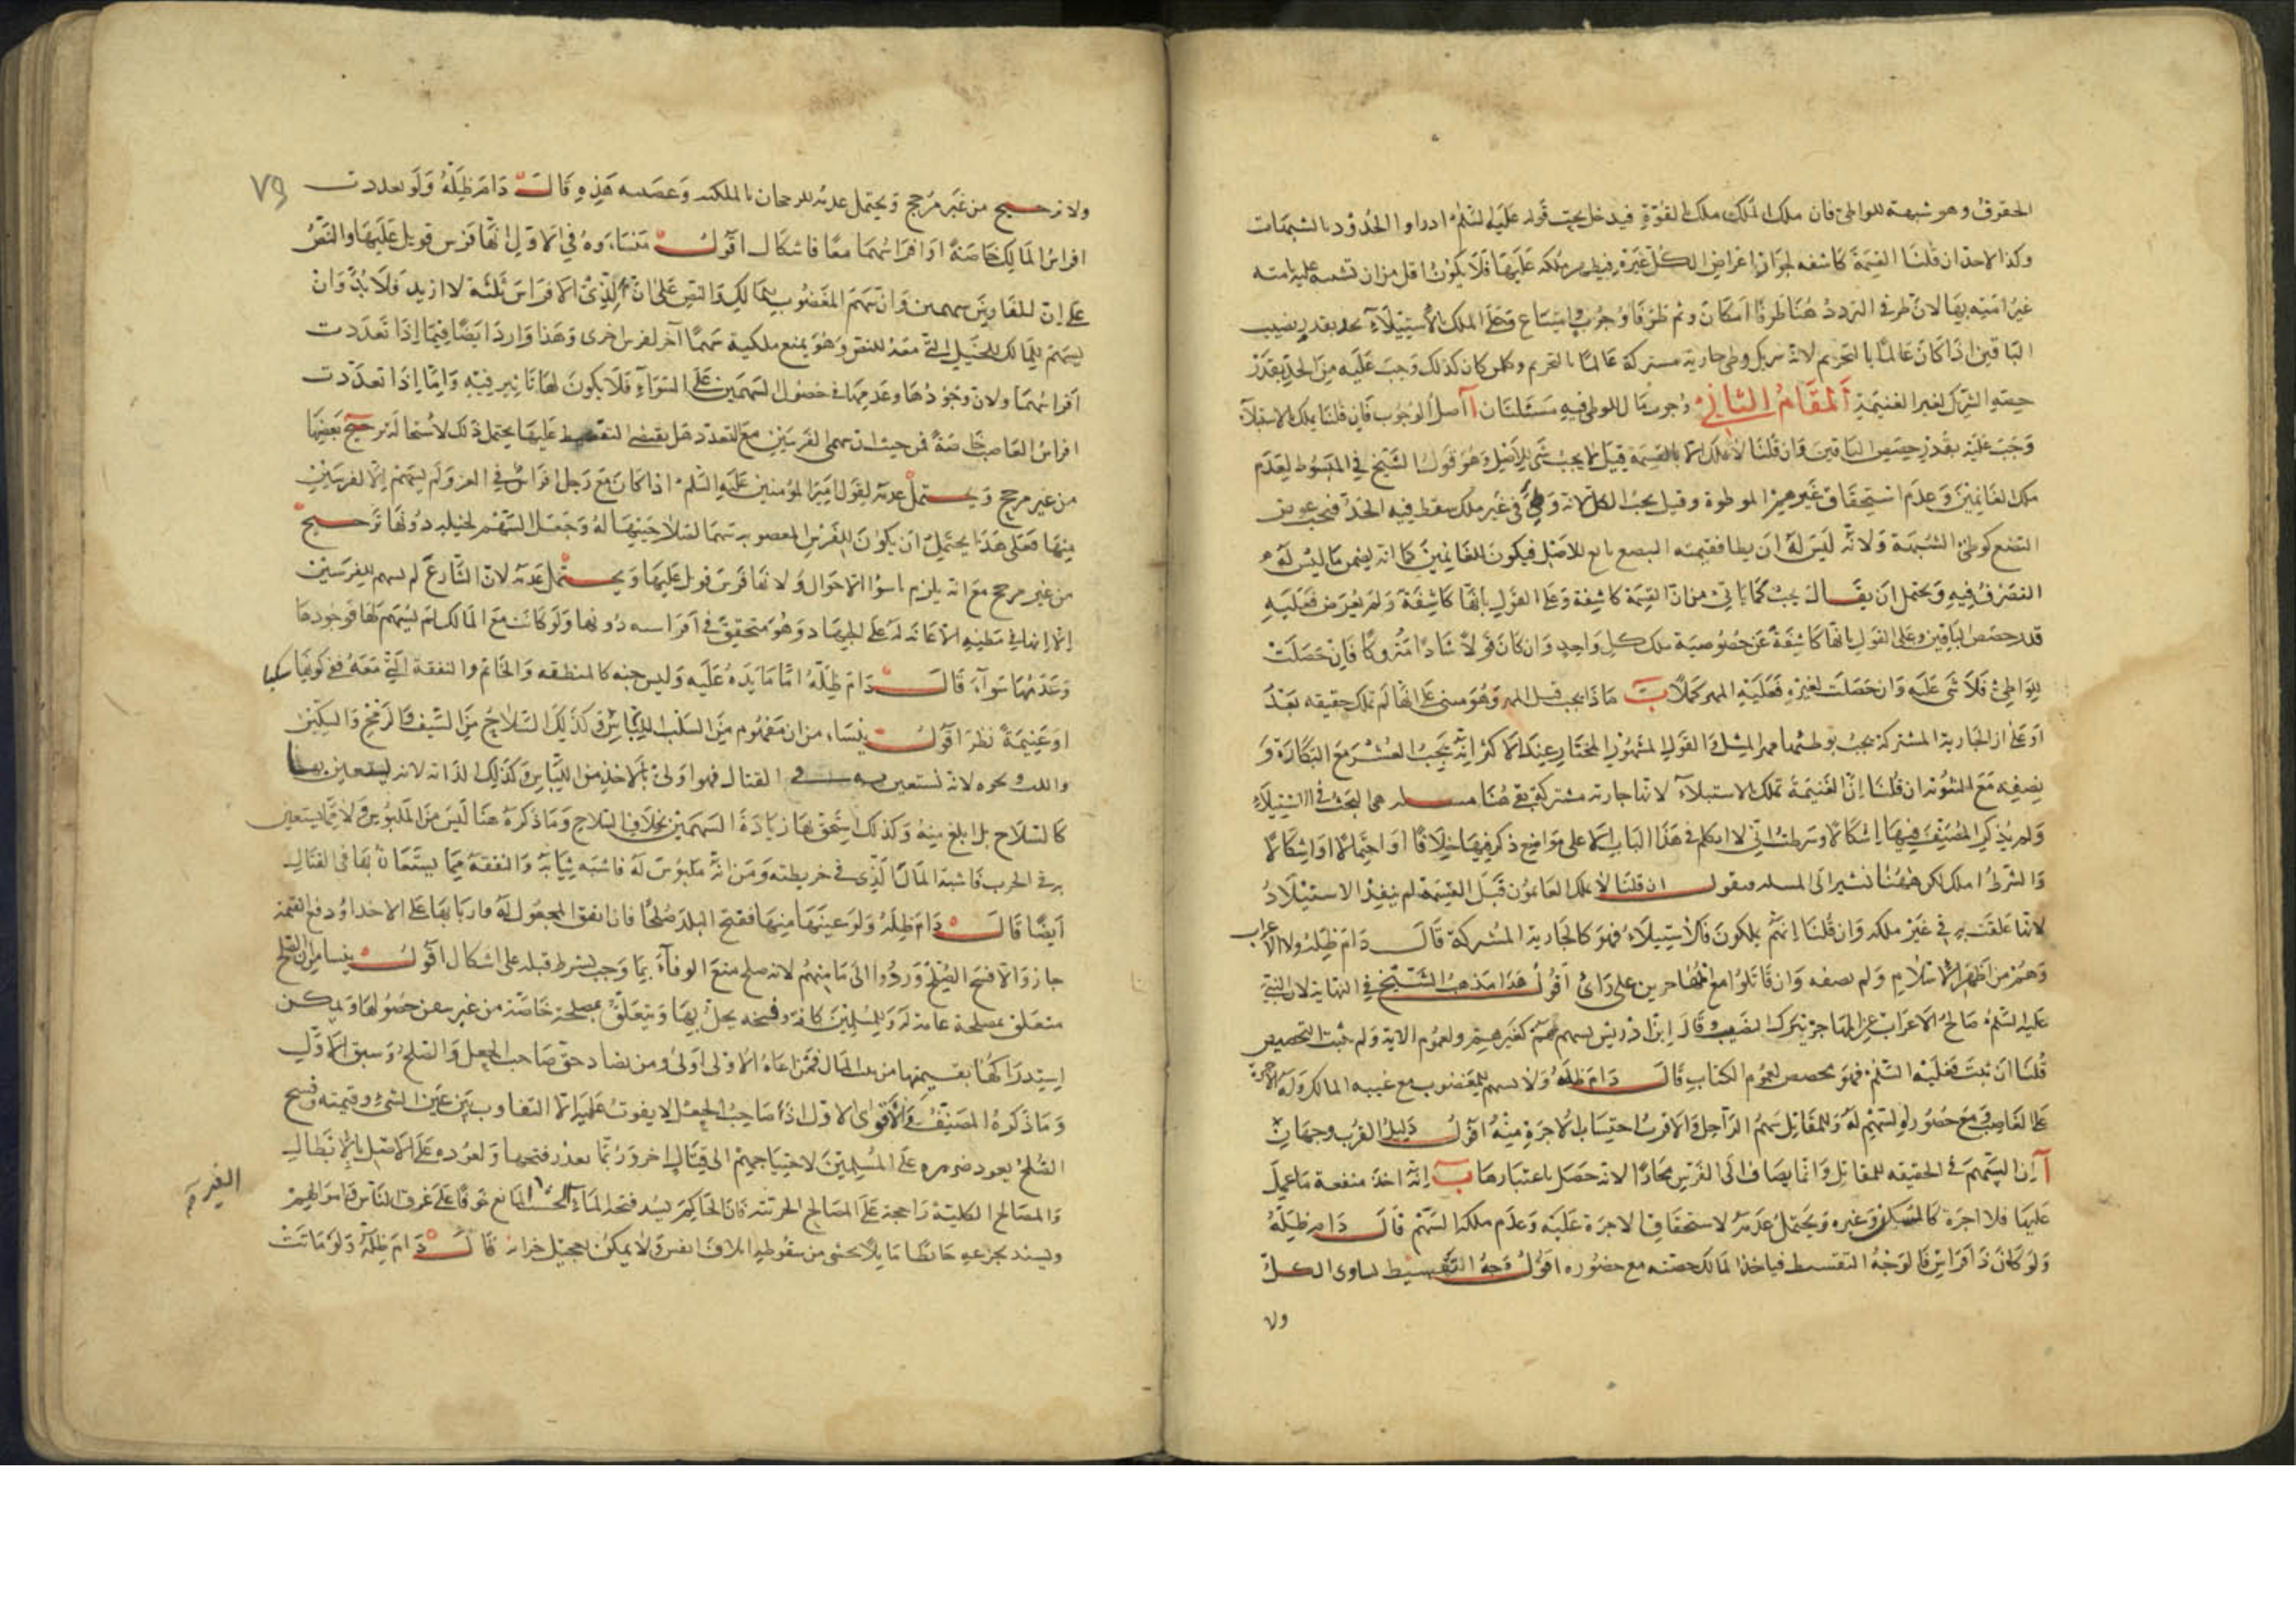 الحقوق وهو شبهة للواطئ فان ملك ان تملك ملك بالقوة فيدخل تحت قوله عليه السلم ادراوا الحدود بالشبهات
وكذا لا حد ان قلنا القسمة كاشفة لجواز اعراض الكل غيره فيظهر ملكه عليها فلا يكون اقل من ان تشبه عليه بامته
غير امته بها لان طرفي التردد هنا طرفا امكان وثم طرفا وجوب وامتناع وعلى الملك بالاستيلاء يحد بقدر نصيب
الباقين اذا كان عالما بالتحريم لانه شريك وطئ جارية مشتركة عالما بالتحريم وكل من كان كذلك وجب عليه من الحد بقدر
حصة الشرك لغير الغنيمة المقام الثاني وجوب مال للوطي وفيه مسئلتان آ اصل الوجوب فان قلنا يملك بالاستيلاء
وجب عليه بقدر حصص الباقين وان قلنا لا يملك الا بالقسمة قيل لا يجب شئ للاصل وهو قول الشيخ في المبسوط لعدم
ملك الغانمين وعدم استحقاق غيرهم مهر الموطوة وقيل يجب الكل لانه وطئ في غير ملك سقط فيه الحد فيجب عوض
البضع كوطئ الشبهة ولانه ليس له ان يطا فقيمة البضع تابع للاصل فيكون للغانمين كما انه يضمن ما ليس له
التصرف فيه ويحتمل ان يقال يجب كما ياتي من ان القسمة كاشفة وعلى القول بانها كاشفة ولم يعرض فعليه
قدر حصص الباقين وعلى القول بانها كاشفة عن خصوصية ملك كل واحد وان كان قولا شاذا متروكا فان حصلت
للواطئ فلا شئ عليه وان حصلت لغيره فعليه المهر كملا ب ماذا يجب قيل المهر وهو مبني على انها لم تملك حقيقة بعد
او على ان الجارية المشتركة يجب بوطئها مهر المثل والقول المشهور المختار عند الاكثر انه يجب العشر مع البكارة و
نصفه مع الثيوبة ان قلنا ان الغنيمة تملك بالاستيلاء لانها جارية مشتركة بقي هنا مسئلة هي البحث في الاستيلاد
ولم يذكر المصنف فيها اشكالا وشرطت اني لا اتكلم في هذا الباب الا على مواضع ذكر فيها خلافا او احتمالا او اشكالا
والشرط املك لكن ههنا نشير الى المسئلة فنقول ان قلنا لا يملك الغانمون قبل القسمة لم ينفذ الاستيلاد
لانها علقت به في غير ملكه وان قلنا انهم يملكون فالاستيلاد فهو كالجارية المشتركة قال دام ظله ولا الاعراب
وهم من اظهر الاسلام ولم يصفه وان قاتلوا مع المهاجرين على راي اقول هذا مذهب الشيخ في النهاية لان النبي
عليه السلم صالح الاعراب عن المهاجرة بترك النصيب وقال ابن ادريس يسهم لهم كغيرهم ولعموم الاية ولم يثبت التخصيص
قلنا ان ثبت فعليه السلم فهو مخصص لعموم الكتاب قال دام ظله ولا يسهم للمغضوب مع غيبة المالك وله الاجرة
على الغاصب ومع حضوره السهم له وللمقاتل سهم الراجل والاقرب احتساب الاجرة منه اقول دليل القرب وجهان
آ ان السهم في الحقيقة للمقاتل وانما يضاف الى الفرس مجازا لانه حصل باعتبارها ب انه اخذ منفعة ما عمل
عليها فلا اجرة كالمسكن وغيره ويحتمل عدمه لاستحقاق الاجرة عليه وعدم ملكه السهم قال دام ظله
ولو كان ذا افراس فالوجه التقسيط فياخذ المالك حصته مع حضوره اقول وجه التقسيط تساوى الكل
ولا
٧٩
ولا ترجيح من غير مرجح ويحتمل عدمه للرجحان بالملكية وغصبية هذه قال دام ظله ولو تعددت
افراس المالك خاصة او افراسهما معا فاشكال اقول منشاوه في الاول انها فرس قوتل عليها والنص
على ان للغازي سهمين وان سهم المغضوب للمالك والنص على ان لذي الافراس ثلثة لا ازيد فلا بد وان
يسهم للمالك للخيل التي معه للنص وهو يمنع ملكية سهما آخر لفرس اخرى وهذا وارد ايضا فيما اذا تعددت
افراسهما ولان وجودها وعدمها في حصول السهمين على السواء فلا يكون لها تاثير فيه واما اذا تعددت
افراس الغاصب خاصة فمن حيث ان سهمى الفرسين مع التعدد هل يقتضى التقسيط عليها يحتمل ذلك لاستحالة ترجيح بعضها
من غير مرجح ويحتمل عدمه لقول امير المؤمنين عليه السلم اذا كان مع رجل افراس في الغزو لم يسهم الا لفرسين
منها فعلى هذا يحتمل ان يكون للفرس المغصوبة سهما لئلا حينها له وجعل السهم لخيله دونها ترجيح
من غير مرجح مع انه يلزم اسوا الاحوال ولانها فرس قوتل عليها ويحتمل عدمه لان الشارع لم يسهم للفرسين
الا انها في مظنة الاعانة له على الجهاد وهو متحقق في افراسه دونها ولو كانت مع المالك لم يسهم لها فوجودها
وعدمها سواء قال دام ظله اما ما يده عليه وليس جنبه كالمنطقة والخاتم والنفقة التي معه ففي كونها سلبا
او غنيمة نظر اقول ينشا من ان مفهوم من السلب الثياب وكذلك السلاح من السيف والرمح والسكين
واللت ونحوه لانه تستعين به في القتال فهو اولى بالاخذ من الثياب وكذلك الدابة لانه يستعين بها
كالسلاح بل ابلغ منه وكذلك استحق بها زيادة السهمين بخلاف السلاح وما ذكره هنا ليس من الملبوس ولا مما يستعين
به في الحرب فاشبه المال الذي في خريطته ومن انه ملبوس له فاشبه ثيابه والنفقة مما يستعان بها في القتال
ايضا قال دام ظله ولو عينها منها ففتح البلد صلحا فان اتفق المجعول له واربابها على الاخذ او دفع القيمة
جاز والا فسخ الصلح وردوا الى مامنهم لانه صلح منع الوفاء بما وجب بشرط قبله على اشكال اقول ينشا من ان الصلح
متعلق بمصلحة عامة له وللمسلمين كافة وفسخه يخل بها ويتعلق بمصلحة خاصة من غير حصولها ويمكن
استدراكها بقسيمتها من بيت المال فمراعاة الاولى اولى ومن تضاد حق صاحب الجعل والصلح وسبق الاول
وما ذكره المصنف والاقوى الاول اذ صاحب الجعل لا يفوت عليه الا التفاوت بين عين الشئ وقيمته وفسخ
الصلح يعود ضرره على المسلمين لاحتياجهم الى قتال اخر وربما تعذر فتحها ولعوده على الاصل بالابطال
والمصالح الكلية راجحة على المصالح الجزئية فان الحاكم يسد فتحة الماء المانع خوفا على غرق الناس واموالهم
ويسند بجزعه حائطا مايلا يخشى من سقوطه اتلاف نفس ولا يمكن تعجيل قال دام ظله ولو ماتت